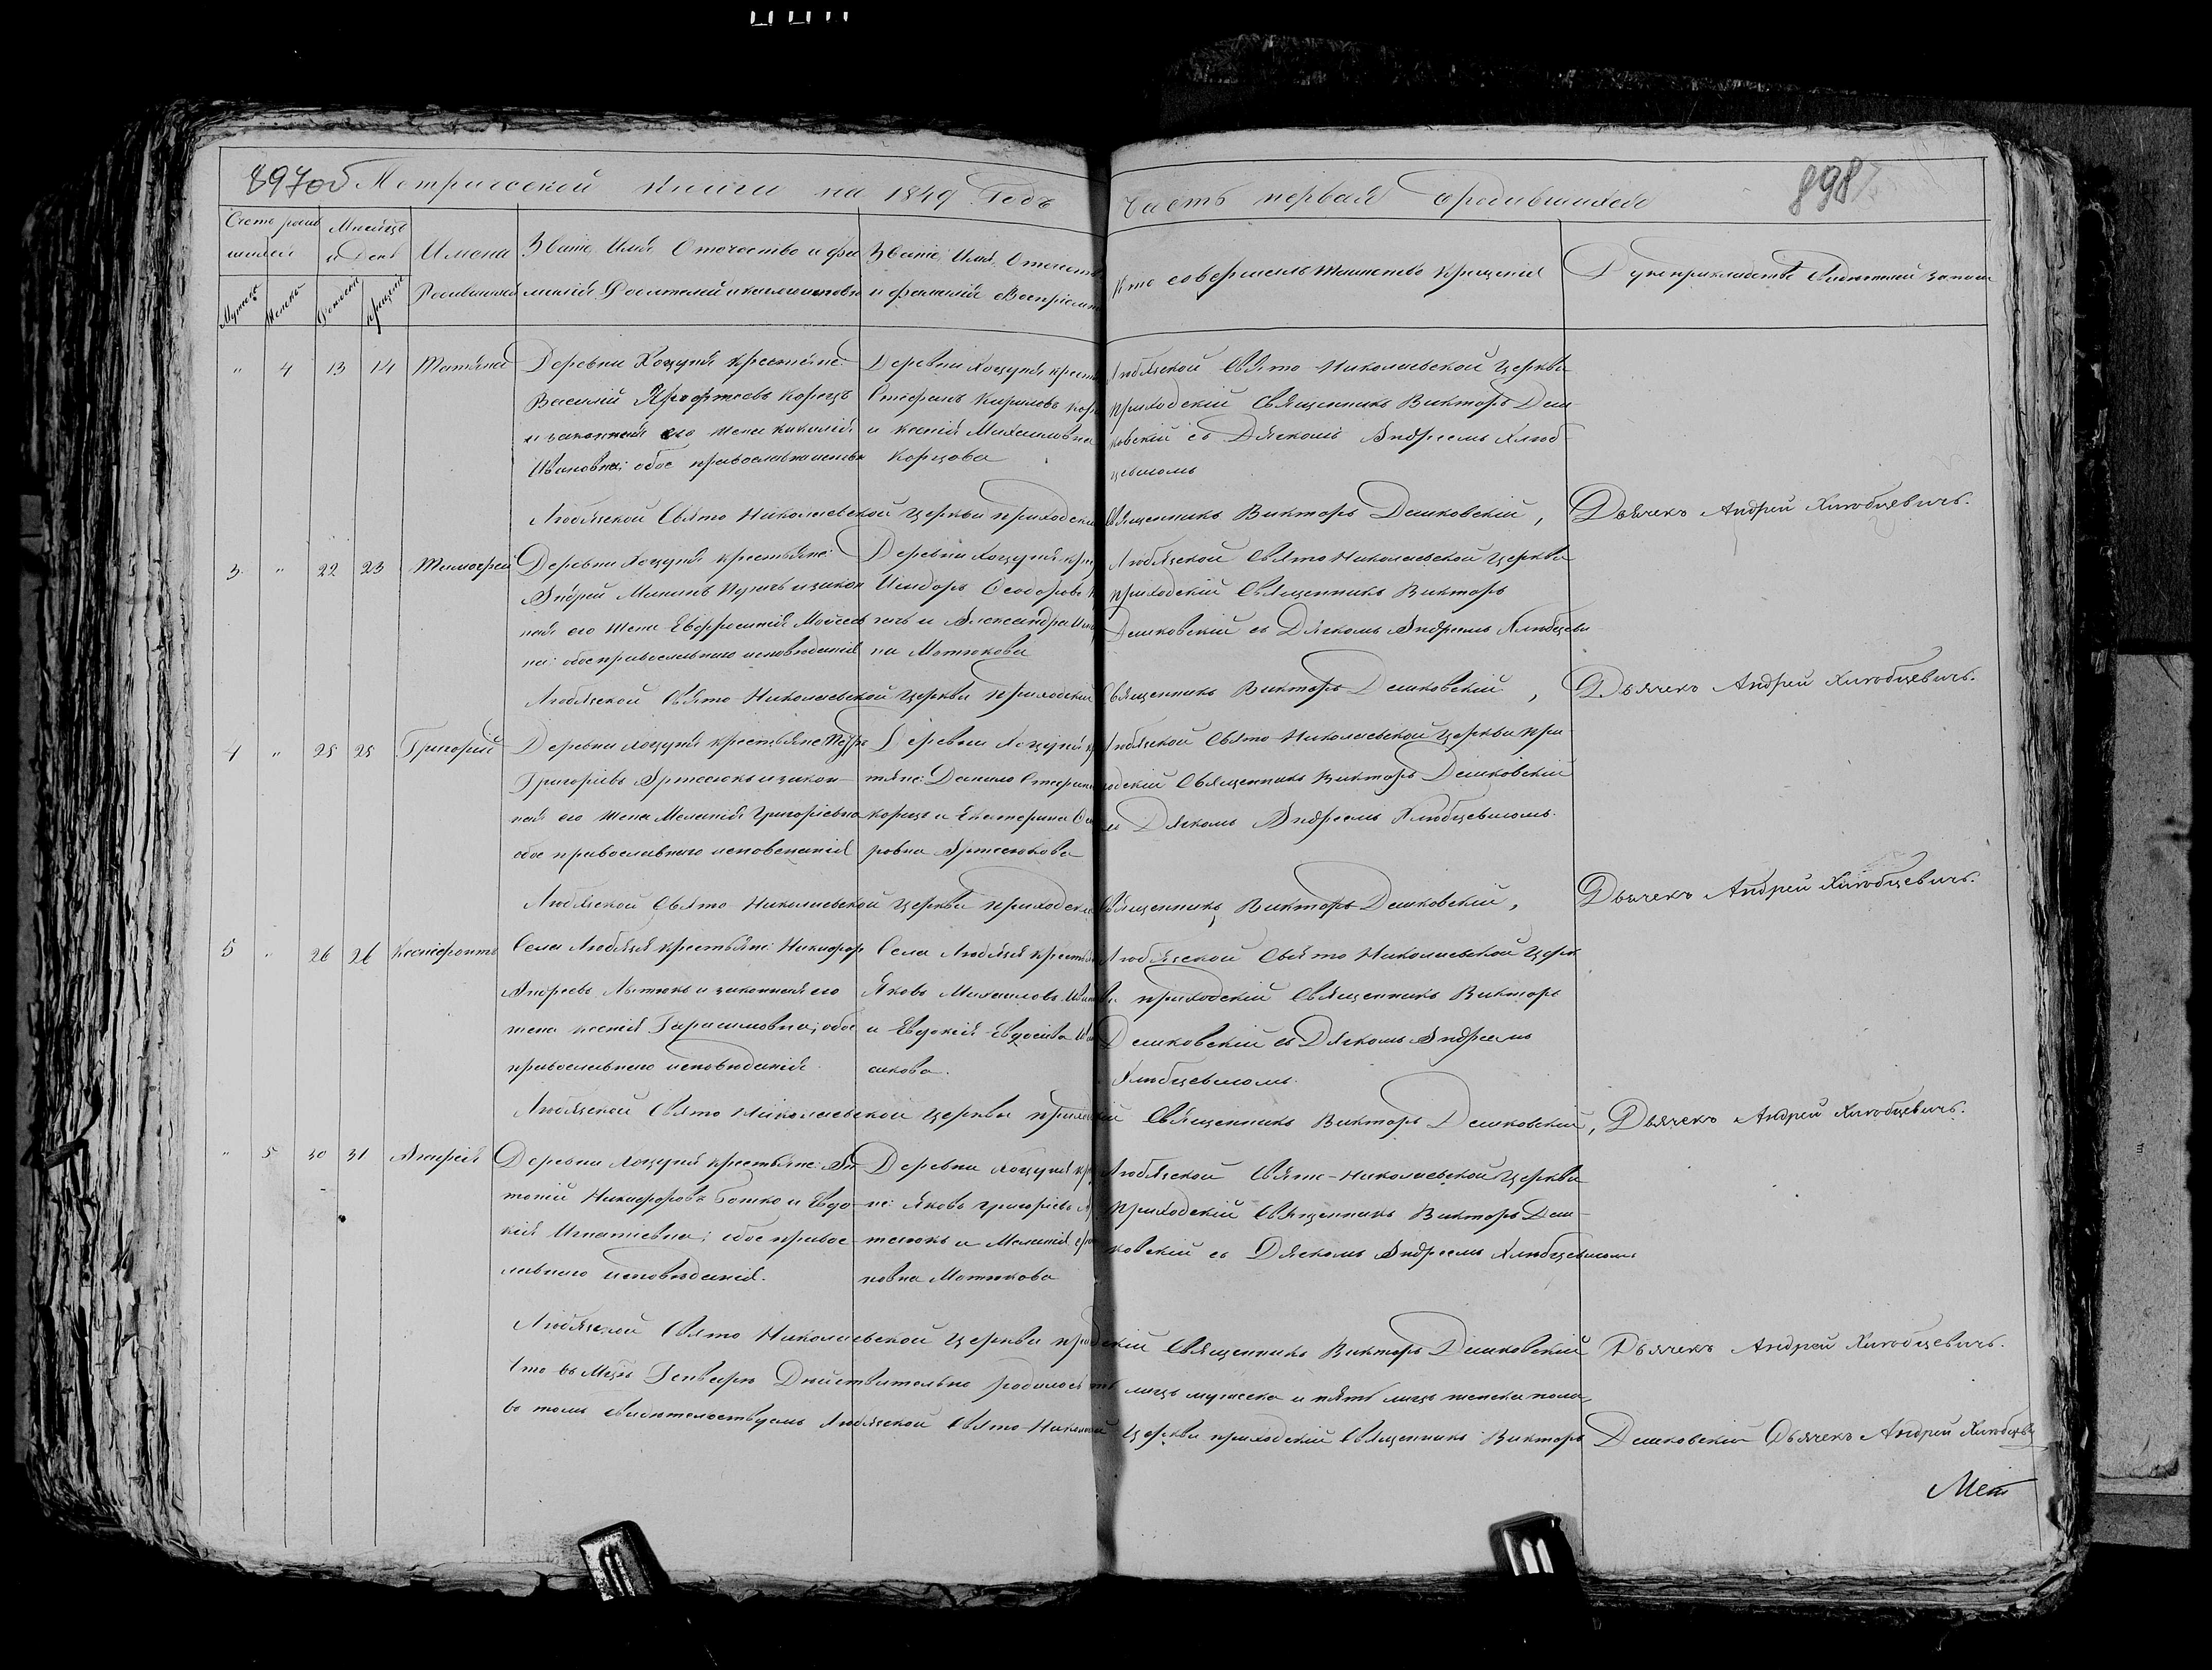 897об Метрической книги на 1849 Годъ
Часть первая о родившихся 898
Счетъ родив
шихся
Мужеска
Женска
Мѣсяцъ
и День
Рожденія
Крещенія
Имена
Родившихся
Званіе, Имя, Отечество и фа
милія Родителей и какого исповѣ
Званіе, Имя, Отечество
и фамилія Воспріемн
Кто совершалъ таинство крещенія
Рукоприкладство Свидетелей записи
" 4 13 14 Татіяна
Деревни Хоцуня крестьяне:
Василій Ерофѣевъ Корецъ
и законная его жена
Ивановна; обое православнаго испов
Деревни Хоцуня крест
Стефанъ Кириловъ Кор
и Ксенія Михаиловна
Корцова
Любязской Свято Николаевской Церкви
приходскій Священникъ Викторъ Даш
ковскій съ Дячкомъ Андреемъ Хлюб
цевичомъ
Любязской Свято Николаевской Церкви приходскій Священникъ Викторъ Дашковскій, Дьячекъ Андрей Хлюбцевичъ.
3 " 22 23 Тимофей
Деревни Хоцуня крестьяне:
Андрей Мининъ и закон
ная его жена Евфросинія Моисеев
на: обое православнаго исповѣданія
Деревни Хоцуня кре
Исидоръ Феодоровъ
и Александра
на Мотюкова
Любязской Свято Николаевской Церкви
приходскій Священникъ Викторъ
Дашковскій съ Дячкомъ Андреемъ Хлюбцеви
Любязской Свято-Николаевской Церкви приходскій Священникъ Викторъ Дашковскій, Дьячекъ Андрей Хлюбцевичъ.
4 " 25 25 Григорій
Деревни Хоцуня крестьяне Петръ
Григоріевъ Артесюкъ и закон
ная его жена Меланія Григоріевна
обое православнаго исповеданія
Деревни Хоцуня кр
тяне: Данило Стефан
Корецъ и Екатерина
ровна Артесюкова
Любязской Свято-Николаевской Церкви при
ходскій Священникъ Викторъ Дашковскій
съ Дячкомъ Андреемъ Хлюбцевичомъ.
Любязской Свято-Николаевской Церкви приходскій Священникъ Викторъ Дашковскій, Дьячекъ Андрей Хлюбцевичъ.
5 " 26 26 Ксенефонтъ
Села Любязя крестьяне: Никифоръ
Андреевъ Лытюкъ и законная его
жена Ксенія Гарасимовна; обое
православнаго исповѣданія
Села Любязя крестья
Яковъ Михаиловъ
и Евдокія
сикова.
Любязской Свято Николаевской Церк
ви приходскій Священникъ Викторъ
Дашковскій съ Дячкомъ Андреемъ
Хлюбцевичомъ.
Любязской Свято Николаевской Церкви приходскій Священникъ Викторъ Дашковскій, Дьячекъ Андрей Хлюбцевичъ.
" 5 30 31
Деревни Хоцуня крестьяне: Ан
тоній Никифоровъ Бошко и Евдо
кія Игнатіевна; обое правос
лавнаго исповѣданія.
Деревни Хоцуня кр
не: Яковъ Григорьевъ Ар
тесюкъ и Меланія
новна Мотюкова
Любязской Свято-Николаевской Церкви
Приходскій Священникъ Викторъ Даш
ковскій съ Дячкомъ Андреемъ Хлюбцевичомъ
Любязской Свято Николаевской Церкви приходскій Священникъ Викторъ Дашковскій Дьячекъ Андрей Хлюбцевичъ.
Что въ Мцѣ Генварѣ Дѣйствительно родилось пять лицъ мужеска и пять лицъ женска пола,
въ томъ свидѣтельствуемъ Любязской Свято-Николаевской Церкви приходскій Священникъ Викторъ Дашковскій Дьячекъ Андрей Хлюбцевичъ
Мет